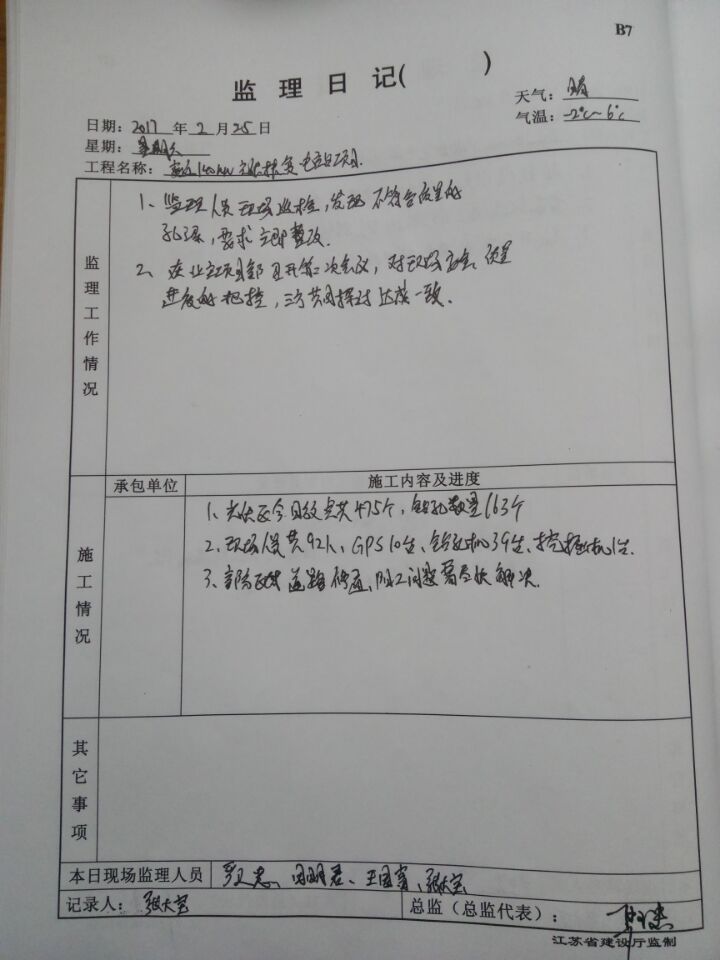 B7
监 理 日 记( )
天气：晴
日期：2017 年 2 月 25 日
气温：-2℃~6℃
星期：星期六
工程名称：
监理工作情况
1、监理人员现场巡检，发现不符合质量的
孔深，要求立即整改。
2、在业主项目部召开第二次会议，对现场安全、质量
进度的把控，三方共同探讨达成一致。
承包单位 施工内容及进度
施工情况
1、光伏区今日放完共475个，钻孔数量163个
2、现场人员共92人、GPS10台、钻孔机39台、挖掘机1台。
3、道路 阻工问题需尽快解决。
其它事项
本日现场监理人员 王国富、张大宝
记录人：张大宝 总监（总监代表）：
江苏省建设厅监制